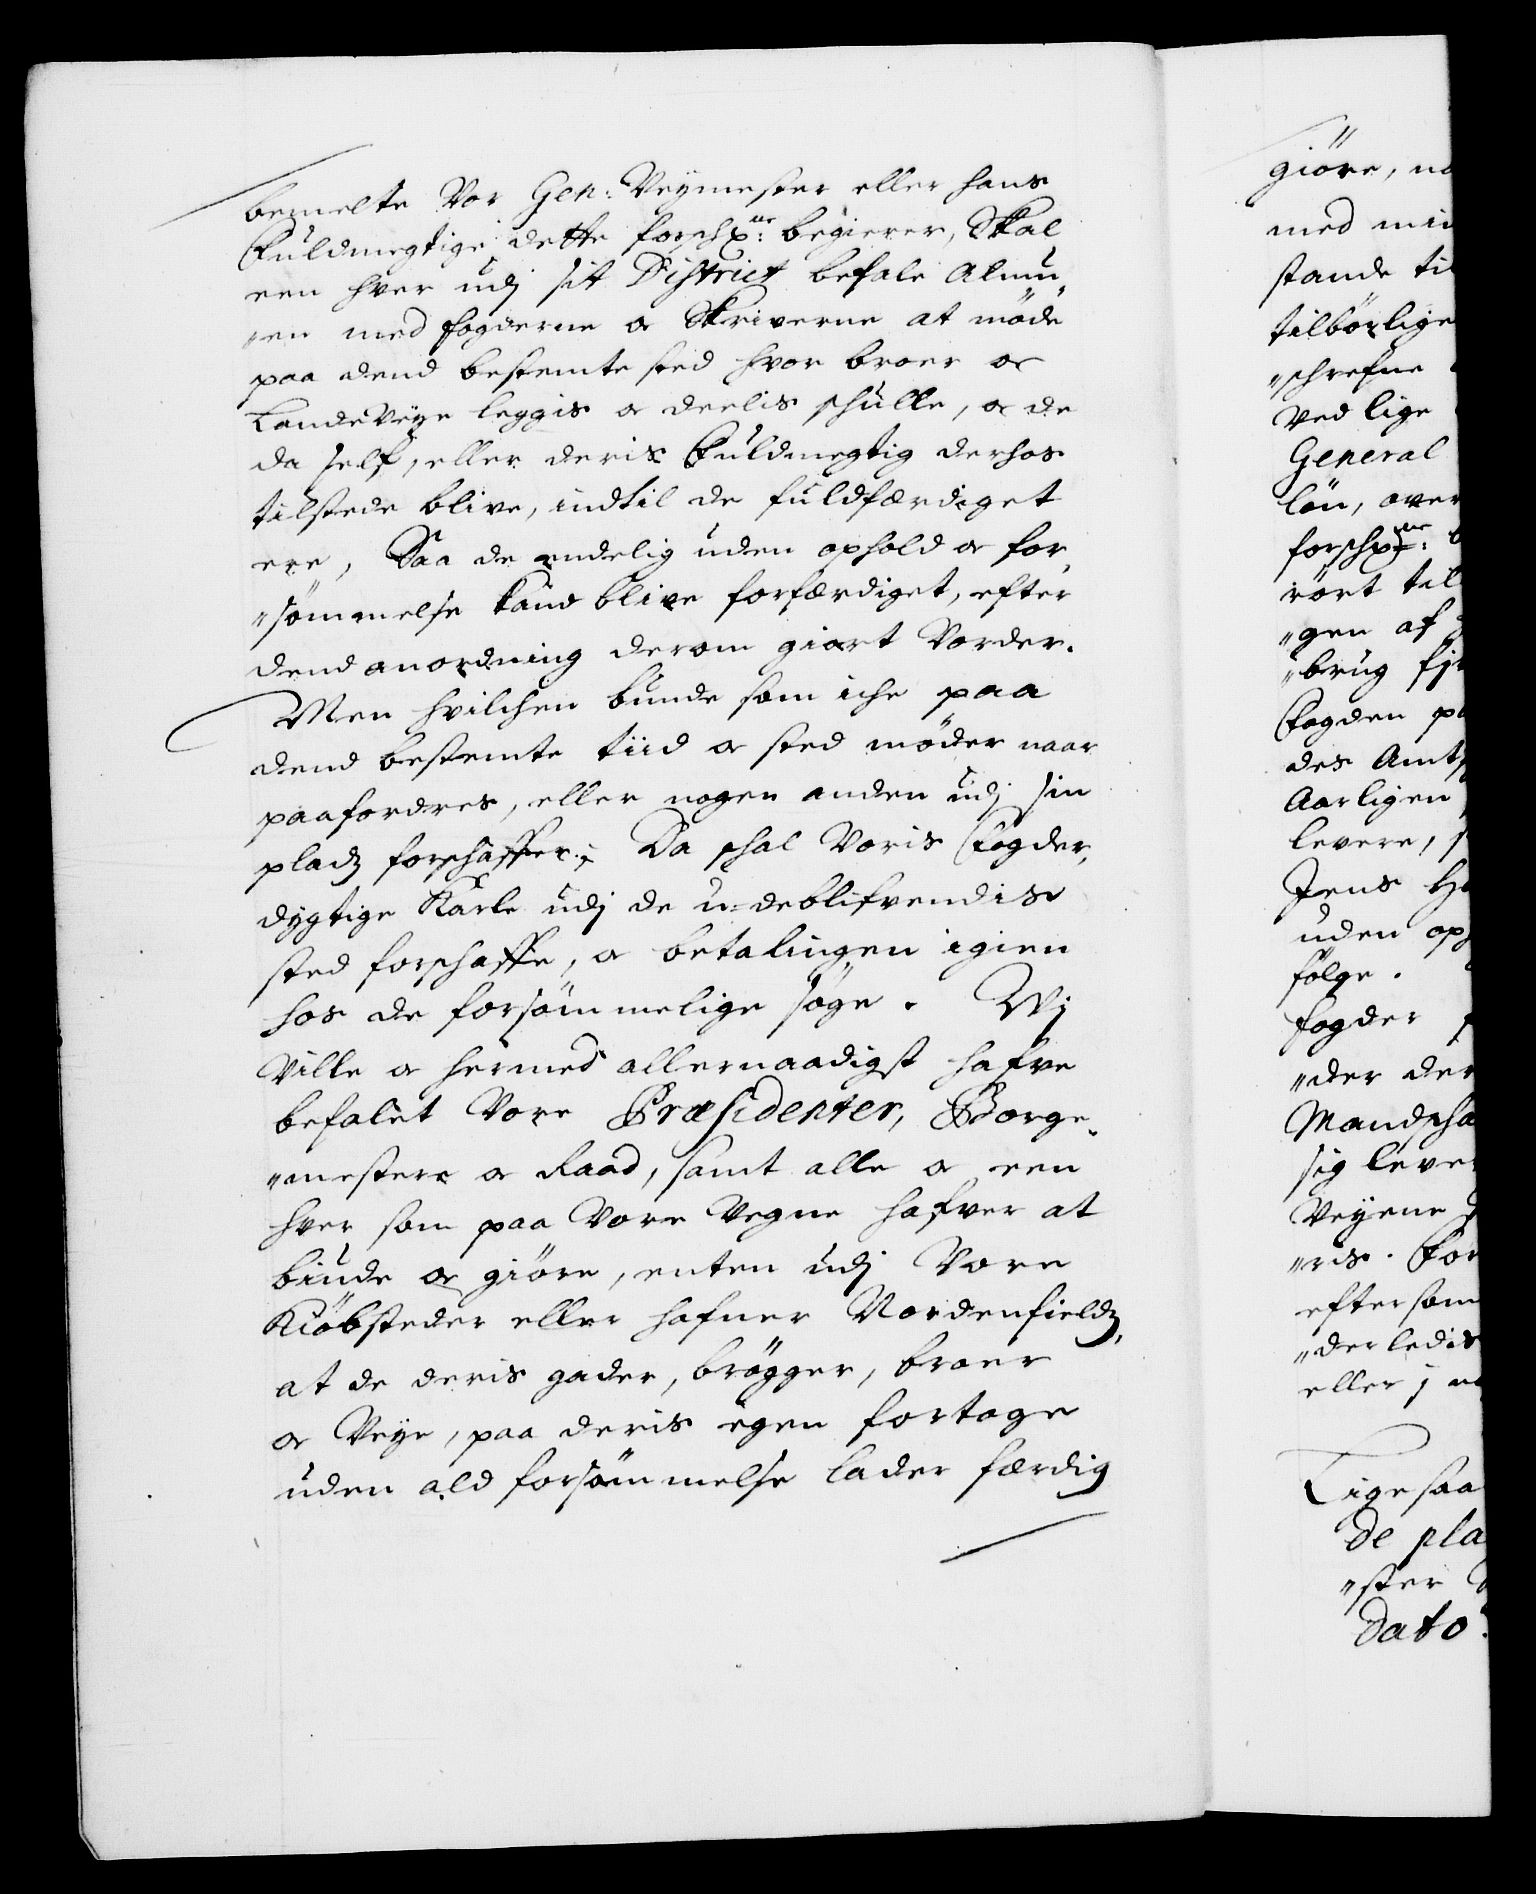 bemelte Vor Gen: Veymester eller hans
Fuldmegtige dette forschr:ne begierer, Skal
een hver udj sit District befale Almu„
„en med fogderne oc Skriverne at møde
paa dend bestemte sted hvor broer oc
LandeVeye leggis oc deelis schulle, oc de
da self, eller deris Fuldmegtig derhos
tilstede blive, indtil de fuldfærdiget
ere, Saa de endelig uden ophold oc for„
„sømmelse kand blive forfærdiget, efter
dend anordning derom giort Vorder.
Men hvilchen bunde som iche paa
dend bestemte tiid oc sted møder naar
paafordres, eller nogen anden udj sin
pladz forschaffer; Da schal Voris Fogder,
dygtige Karle udj de u-deblifvendis
sted forschaffe, oc betalingen igien
hos de forsømmelige søge. Wj
Ville oc hermed allernaadigst hafve
befalet Vore Præsidenter, Borge„
„mestere oc Raad, samt alle oc een
hver som paa Vore Vegne hafver at
biude oc giøre, enten udj Vore
Kiøbsteder eller hafner Nordenfieldz,
at de deris gader, brøgger, broer
oc Veye, paa deris egen fortage
uden ald forsømmelse lader færdig
giøre, na
med min
stande til
tilbørlige
„schrefne
Ved lige
General
løn, over
forschr:ne
rørt til
„gen af
„brug
Fogden
des Amt
Aarligen
levere,
Jens H
uden op
følge.
fogder
„der der
Mandscha
sig leve
Veyene
„ris. For
eftersom
„derledis
eller j
Ligesaa
De pla
„ster
Dato